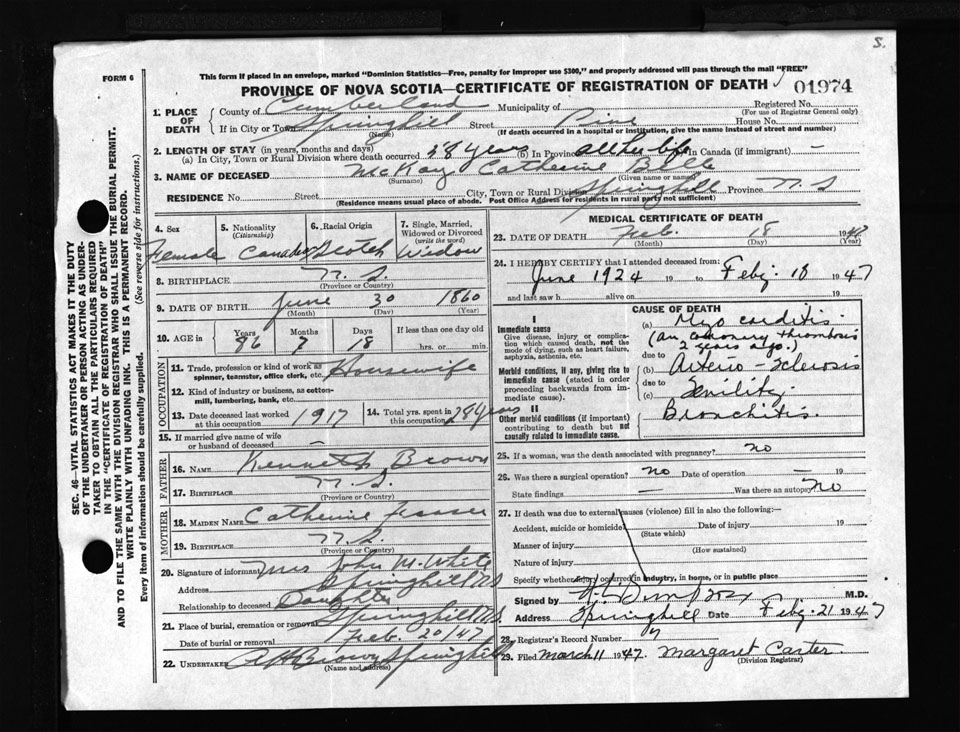 S.
FORM 6
This form if placed in an envelope, marked "Dominion Statistics—Free, penalty for improper use $300," and properly addressed will pass through the mail "FREE"
PROVINCE OF NOVA SCOTIA—CERTIFICATE OF REGISTRATION OF DEATH 01974
SEC. 46—VITAL STATISTICS ACT MAKES IT THE DUTY
OF THE UNDERTAKER OR PERSON ACTING AS UNDER-
TAKER TO OBTAIN ALL THE PARTICULARS REQUIRED
IN THE "CERTIFICATE OF REGISTRATION OF DEATH"
AND TO FILE THE SAME WITH THE DIVISION REGISTRAR WHO SHALL ISSUE THE BURIAL PERMIT.
WRITE PLAINLY WITH UNFADING INK. THIS IS A PERMANENT RECORD.
Every item of information should be carefully supplied. (See reverse side for instructions.)
1. PLACE OF DEATH
County of Cumberland Municipality of Registered No.
(For use of Registrar General only)
If in City or Town Springhill Street Pine House No.
(Name) (If death occurred in a hospital or institution, give the name instead of street and number)
2. LENGTH OF STAY (in years, months and days)
(a) In City, Town or Rural Division where death occurred 58 years (b) In Province all her life In Canada (if immigrant) —
3. NAME OF DECEASED McKay Catherine Belle
(Surname) (Given name or names)
RESIDENCE No. Street City, Town or Rural Division Springhill Province N.S
(Residence means usual place of abode. Post Office Address for residents in rural parts not sufficient)
4. Sex
Female
5. Nationality
(Citizenship)
Canadian
6. Racial Origin
Scotch
7. Single, Married, Widowed or Divorced
(write the word)
Widow
8. BIRTHPLACE N.S.
(Province or Country)
9. DATE OF BIRTH June 30 1860
(Month) (Day) (Year)
10. AGE in
Years Months Days If less than one day old
86 7 18 hrs. or min.
OCCUPATION
11. Trade, profession or kind of work as
spinner, teamster, office clerk, etc. Housewife
12. Kind of industry or business, as cotton-
mill, lumbering, bank, etc.
13. Date deceased last worked
at this occupation 1917
14. Total yrs. spent in
this occupation years
15. If married give name of wife
or husband of deceased —
FATHER
16. NAME Kenneth Brown
17. BIRTHPLACE N.S.
(Province or Country)
MOTHER
18. MAIDEN NAME Catherine
19. BIRTHPLACE N.S.
(Province or Country)
20. Signature of informant Mrs John M. White
Address Springhill N.S
Relationship to deceased Daughter
21. Place of burial, cremation or removal Springhill N.S.
Date of burial or removal Feb. 20/47
22. UNDERTAKER A H Brown Springhill
(Name and address)
MEDICAL CERTIFICATE OF DEATH
23. DATE OF DEATH Feb. 18 1947
(Month) (Day) (Year)
24. I HEREBY CERTIFY that I attended deceased from:
June 1924 19 to Feby. 18 1947
and last saw h alive on 19
CAUSE OF DEATH
I
Immediate cause
Give disease, injury or complica-
tion which caused death, not the
mode of dying, such as heart failure,
asphyxia, asthenia, etc.
Morbid conditions, if any, giving rise to
immediate cause (stated in order
proceeding backwards from im-
mediate cause).
II
Other morbid conditions (if important)
contributing to death but not
causally related to immediate cause.
(a) Myo carditis
(An coronary thrombosis
2 years ago.)
due to
(b) Arterio-Sclerosis
due to
(c) Senility
Bronchitis.
25. If a woman, was the death associated with pregnancy? no
26. Was there a surgical operation? no Date of operation — 19
State findings — Was there an autopsy? no
27. If death was due to external causes (violence) fill in also the following:—
Accident, suicide or homicide Date of injury 19
(State which)
Manner of injury
(How sustained)
Nature of injury
Specify whether injury occurred in industry, in home, or in public place
Signed by M.D.
Address Springhill Date Feby. 21 1947
28. Registrar's Record Number
29. Filed March 11 1947. Margaret Carter.
(Division Registrar)